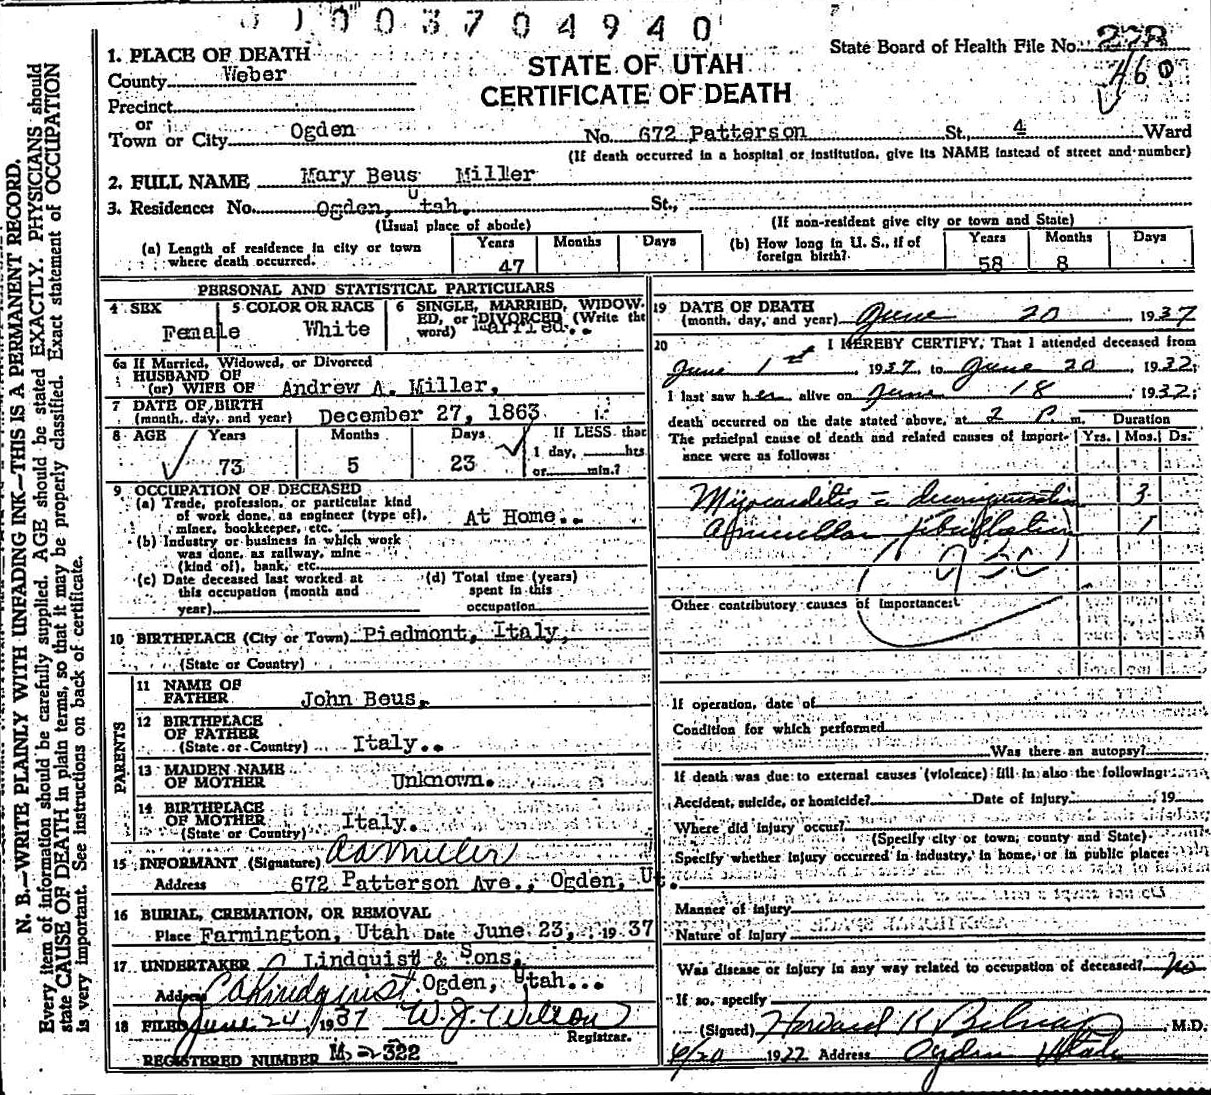 1003704940
State Board of Health File No.
460
STATE OF UTAH
CERTIFICATE OF DEATH
1. PLACE OF DEATH
County Weber
Precinct
or
Town or City Ogden No. 672 Patterson St., 4 Ward
(If death occurred in a hospital or institution, give its NAME instead of street and number)
2. FULL NAME Mary Beus Miller
3. Residences No. Ogden, Utah. St.,
(Usual place of abode) (If non-resident give city or town and State)
(a) Length of residence in city or town where death occurred. Years 47 Months Days
(b) How long in U. S., if of foreign birth? Years 58 Months 8 Days
PERSONAL AND STATISTICAL PARTICULARS
4 SEX Female
5 COLOR OR RACE White
6 SINGLE, MARRIED, WIDOWED, or DIVORCED (Write the word) Married..
6a If Married, Widowed, or Divorced
HUSBAND OF
(or) WIFE OF Andrew A. Miller,
7 DATE OF BIRTH
(month, day, and year) December 27, 1863
8 AGE Years 73 Months 5 Days 23 If LESS that 1 day, hrs or min.?
9 OCCUPATION OF DECEASED
(a) Trade, profession, or particular kind
of work done, as engineer (type of),
miner, bookkeeper, etc. At Home..
(b) Industry or business in which work
was done, as railway, mine
(kind of), bank, etc.
(c) Date deceased last worked at this occupation (month and year)
(d) Total time (years) spent in this occupation
10 BIRTHPLACE (City or Town) Piedmont, Italy,
(State or Country)
PARENTS
11 NAME OF FATHER John Beus,
12 BIRTHPLACE OF FATHER
(State or Country) Italy..
13 MAIDEN NAME OF MOTHER Unknown.
14 BIRTHPLACE OF MOTHER
(State or Country) Italy.
15 INFORMANT (Signature) A A Miller
Address 672 Patterson Ave., Ogden, Ut.
16 BURIAL, CREMATION, OR REMOVAL
Place Farmington, Utah Date June 23, 1937
17 UNDERTAKER Lindquist & Sons,
Address Ogden, Utah...
18 FILED June 24 1937 W. J. Wilson
Registrar.
REGISTERED NUMBER M-322
19 DATE OF DEATH
(month, day, and year) June 20 1937
20 I HEREBY CERTIFY, That I attended deceased from
June 1st, 1937, to June 20, 1937,
I last saw her alive on June 18, 1937;
death occurred on the date stated above, at 2 P. m. Duration
The principal cause of death and related causes of importance were as follows: Yrs. Mos. Ds.
Myocarditis = 3
fibrillation 1
Other contributory causes of importance:
If operation, date of
Condition for which performed
Was there an autopsy?
If death was due to external causes (violence) fill in also the following:
Accident, suicide, or homicide? Date of injury , 19
Where did injury occur?
(Specify city or town, county and State)
Specify whether injury occurred in industry, in home, or in public place:
Manner of injury
Nature of injury
Was disease or injury in any way related to occupation of deceased? no
If so, specify
(Signed) Howard K. M.D.
6/20 1937 Address Ogden Utah
N. B.—WRITE PLAINLY WITH UNFADING INK—THIS IS A PERMANENT RECORD.
Every item of information should be carefully supplied. AGE should be stated EXACTLY. PHYSICIANS should
state CAUSE OF DEATH in plain terms, so that it may be properly classified. Exact statement of OCCUPATION
is very important. See instructions on back of certificate.